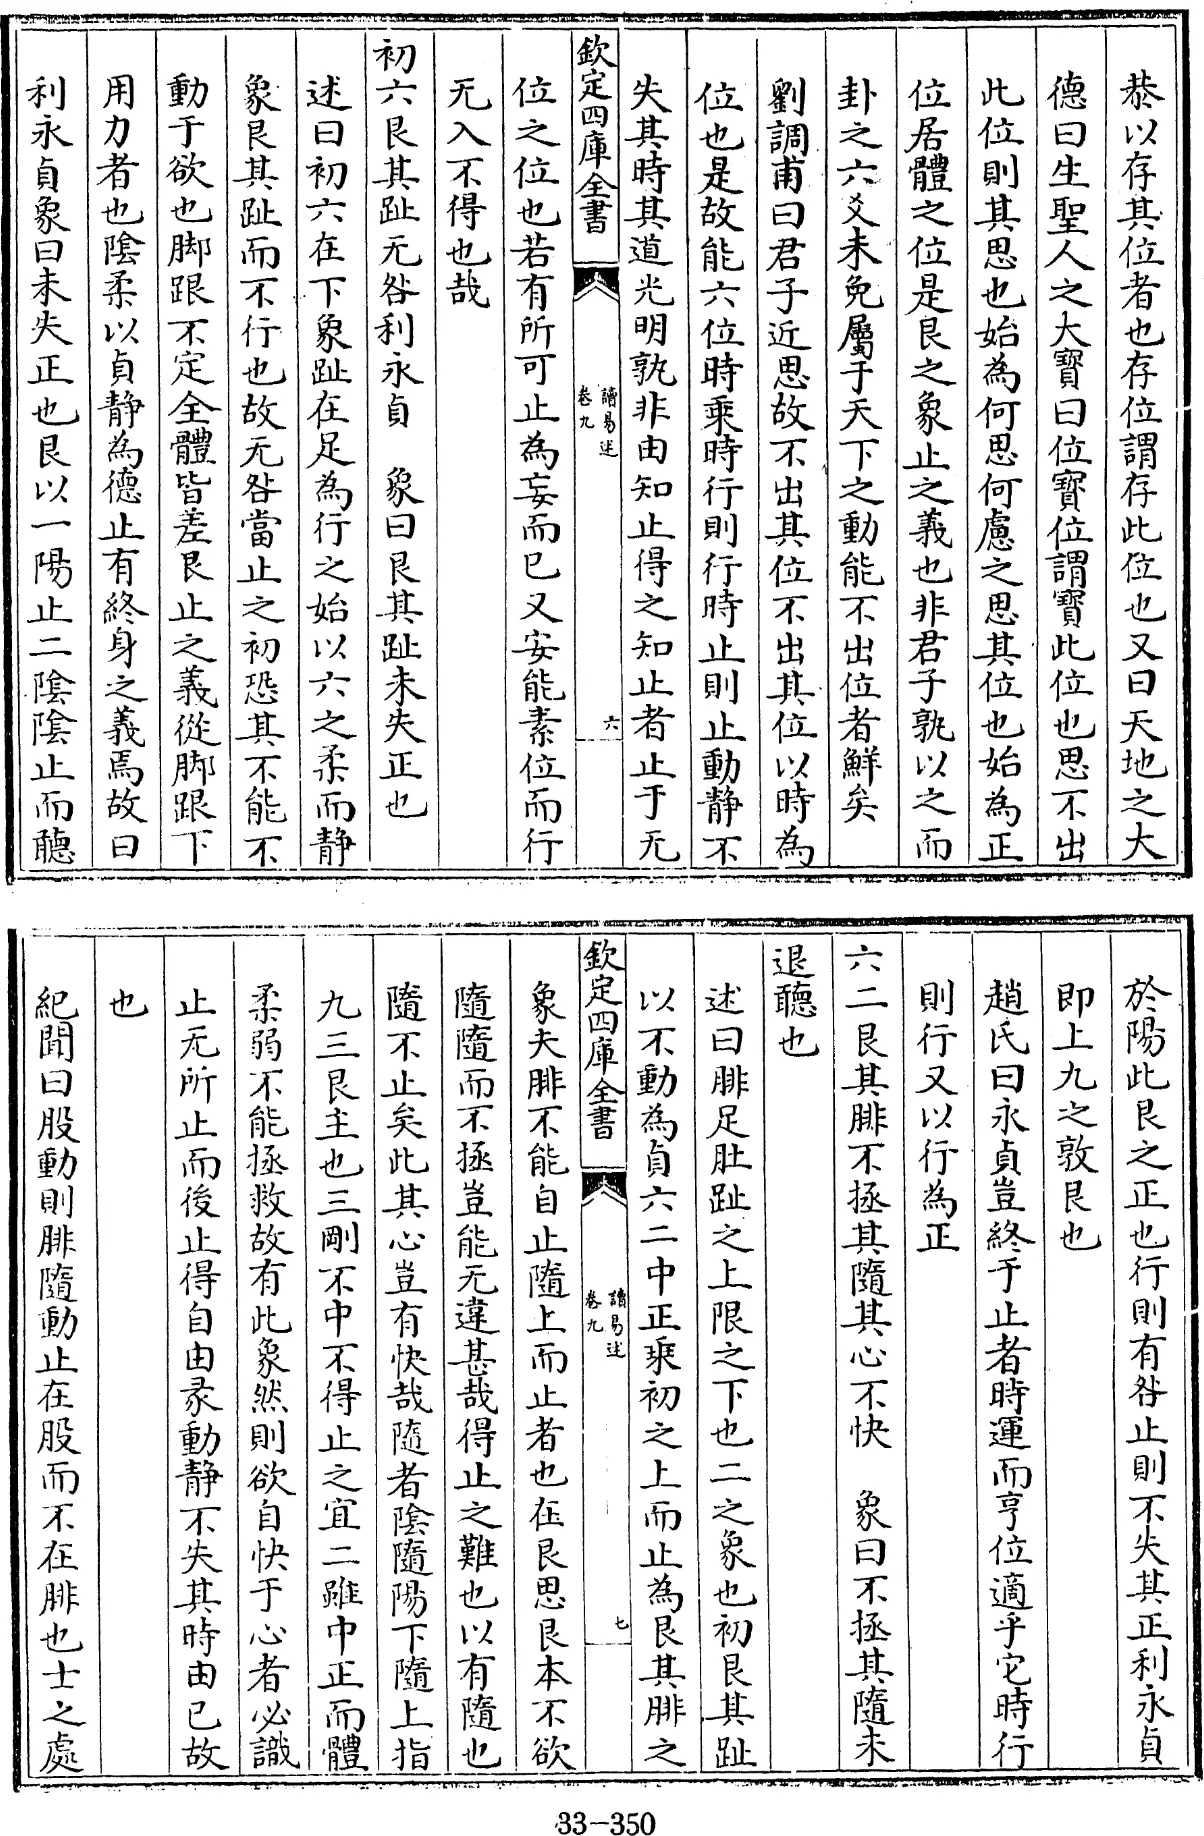 恭以存其位者也存位謂存此位也又曰天地之大
德曰生聖人之大寶曰位寳位謂寳此位也思不出
此位則其思也始為何思何慮之思其位也始為正
位居體之位是艮之象止之義也非君子孰以之而
卦之六爻未免屬于天下之動能不出位者鮮矣
劉調甫曰君子近思故不出其位不出其位以時為
位也是故能六位時乘時行則行時止則止動靜不
失其時其道光明孰非由知止得之知止者止于无
欽定四庫全書
讀易述
卷九
六
位之位也若有所可止為妄而已又安能素位而行
无入不得也哉
初六艮其趾无咎利永貞 象曰艮其趾未失正也
述曰初六在下象趾在足為行之始以六之柔而靜
象艮其趾而不行也故无咎當止之初恐其不能不
動于欲也脚跟不定全體皆差艮止之義從脚跟下
用力者也陰柔以貞靜為德止有終身之義焉故曰
利永貞象曰未失正也艮以一陽止二陰陰止而聽
於陽此艮之正也行則有咎止則不失其正利永貞
即上九之敦艮也
趙氏曰永貞豈終于止者時運而亨位適乎它時行
則行又以行為正
六二艮其腓不拯其隨其心不快 象曰不拯其隨未
退聽也
述曰腓足肚趾之上限之下也二之象也初艮其趾
以不動為貞六二中正乘初之上而止為艮其腓之
欽定四庫全書
讀易述
卷九
七
象夫腓不能自止隨上而止者也在艮思艮本不欲
隨隨而不拯豈能无違甚哉得止之難也以有隨也
隨不止矣此其心豈有快哉隨者陰隨陽下隨上指
九三艮主也三剛不中不得止之宜二雖中正而體
柔弱不能拯救故有此象然則欲自快于心者必識
止无所止而後止得自由彖動靜不失其時由已故
也
紀聞曰股動則腓隨動止在股而不在腓也士之處
33-350